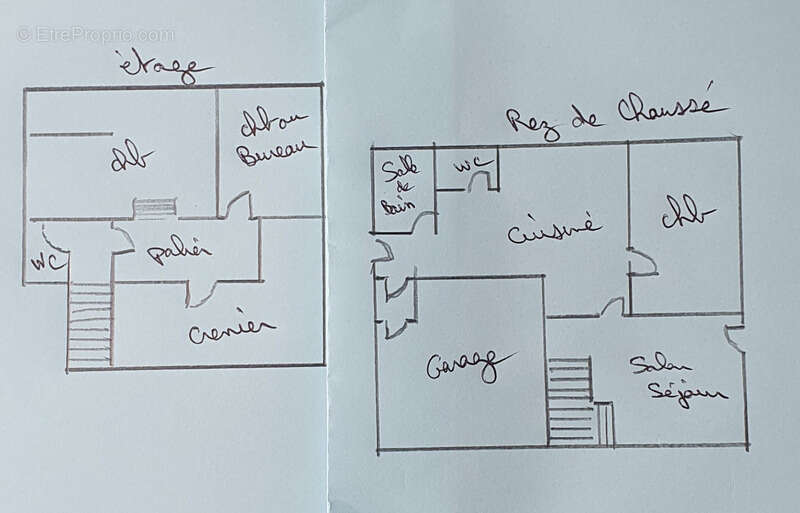 © EtreProprio.com
étage
chb
chb ou
Bureau
WC
palier
Grenier
Rez de Chaussé
Salle
de
Bain
WC
Cuisine
chb
Garage
Salon
Séjour